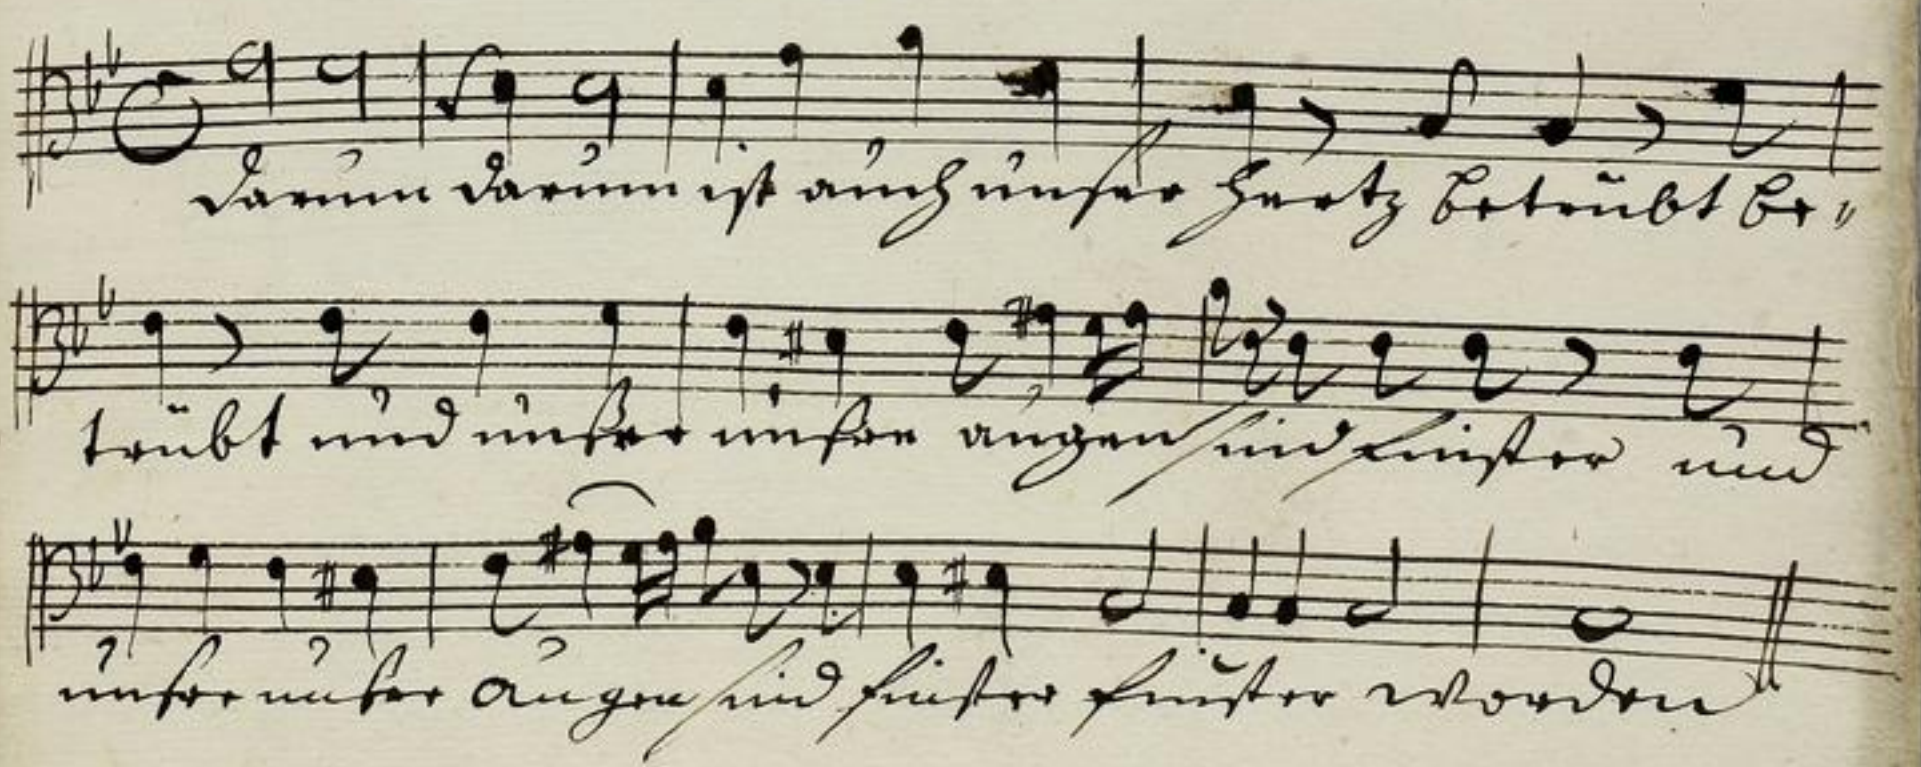 darum darum ist auch unser Hertz betrübt be„
trübt und unßer unsre augen sind finster und
unsre unßer Augen sind finster finster worden